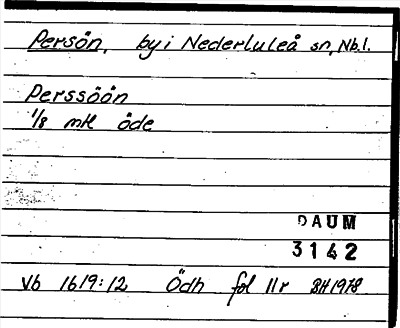 Persön, by i Nederluleå sn, Nb.l.
Perssöön
1/8 mtl öde
DAUM
3142
Vb 1619:12 Ödh fol 11r BH1978